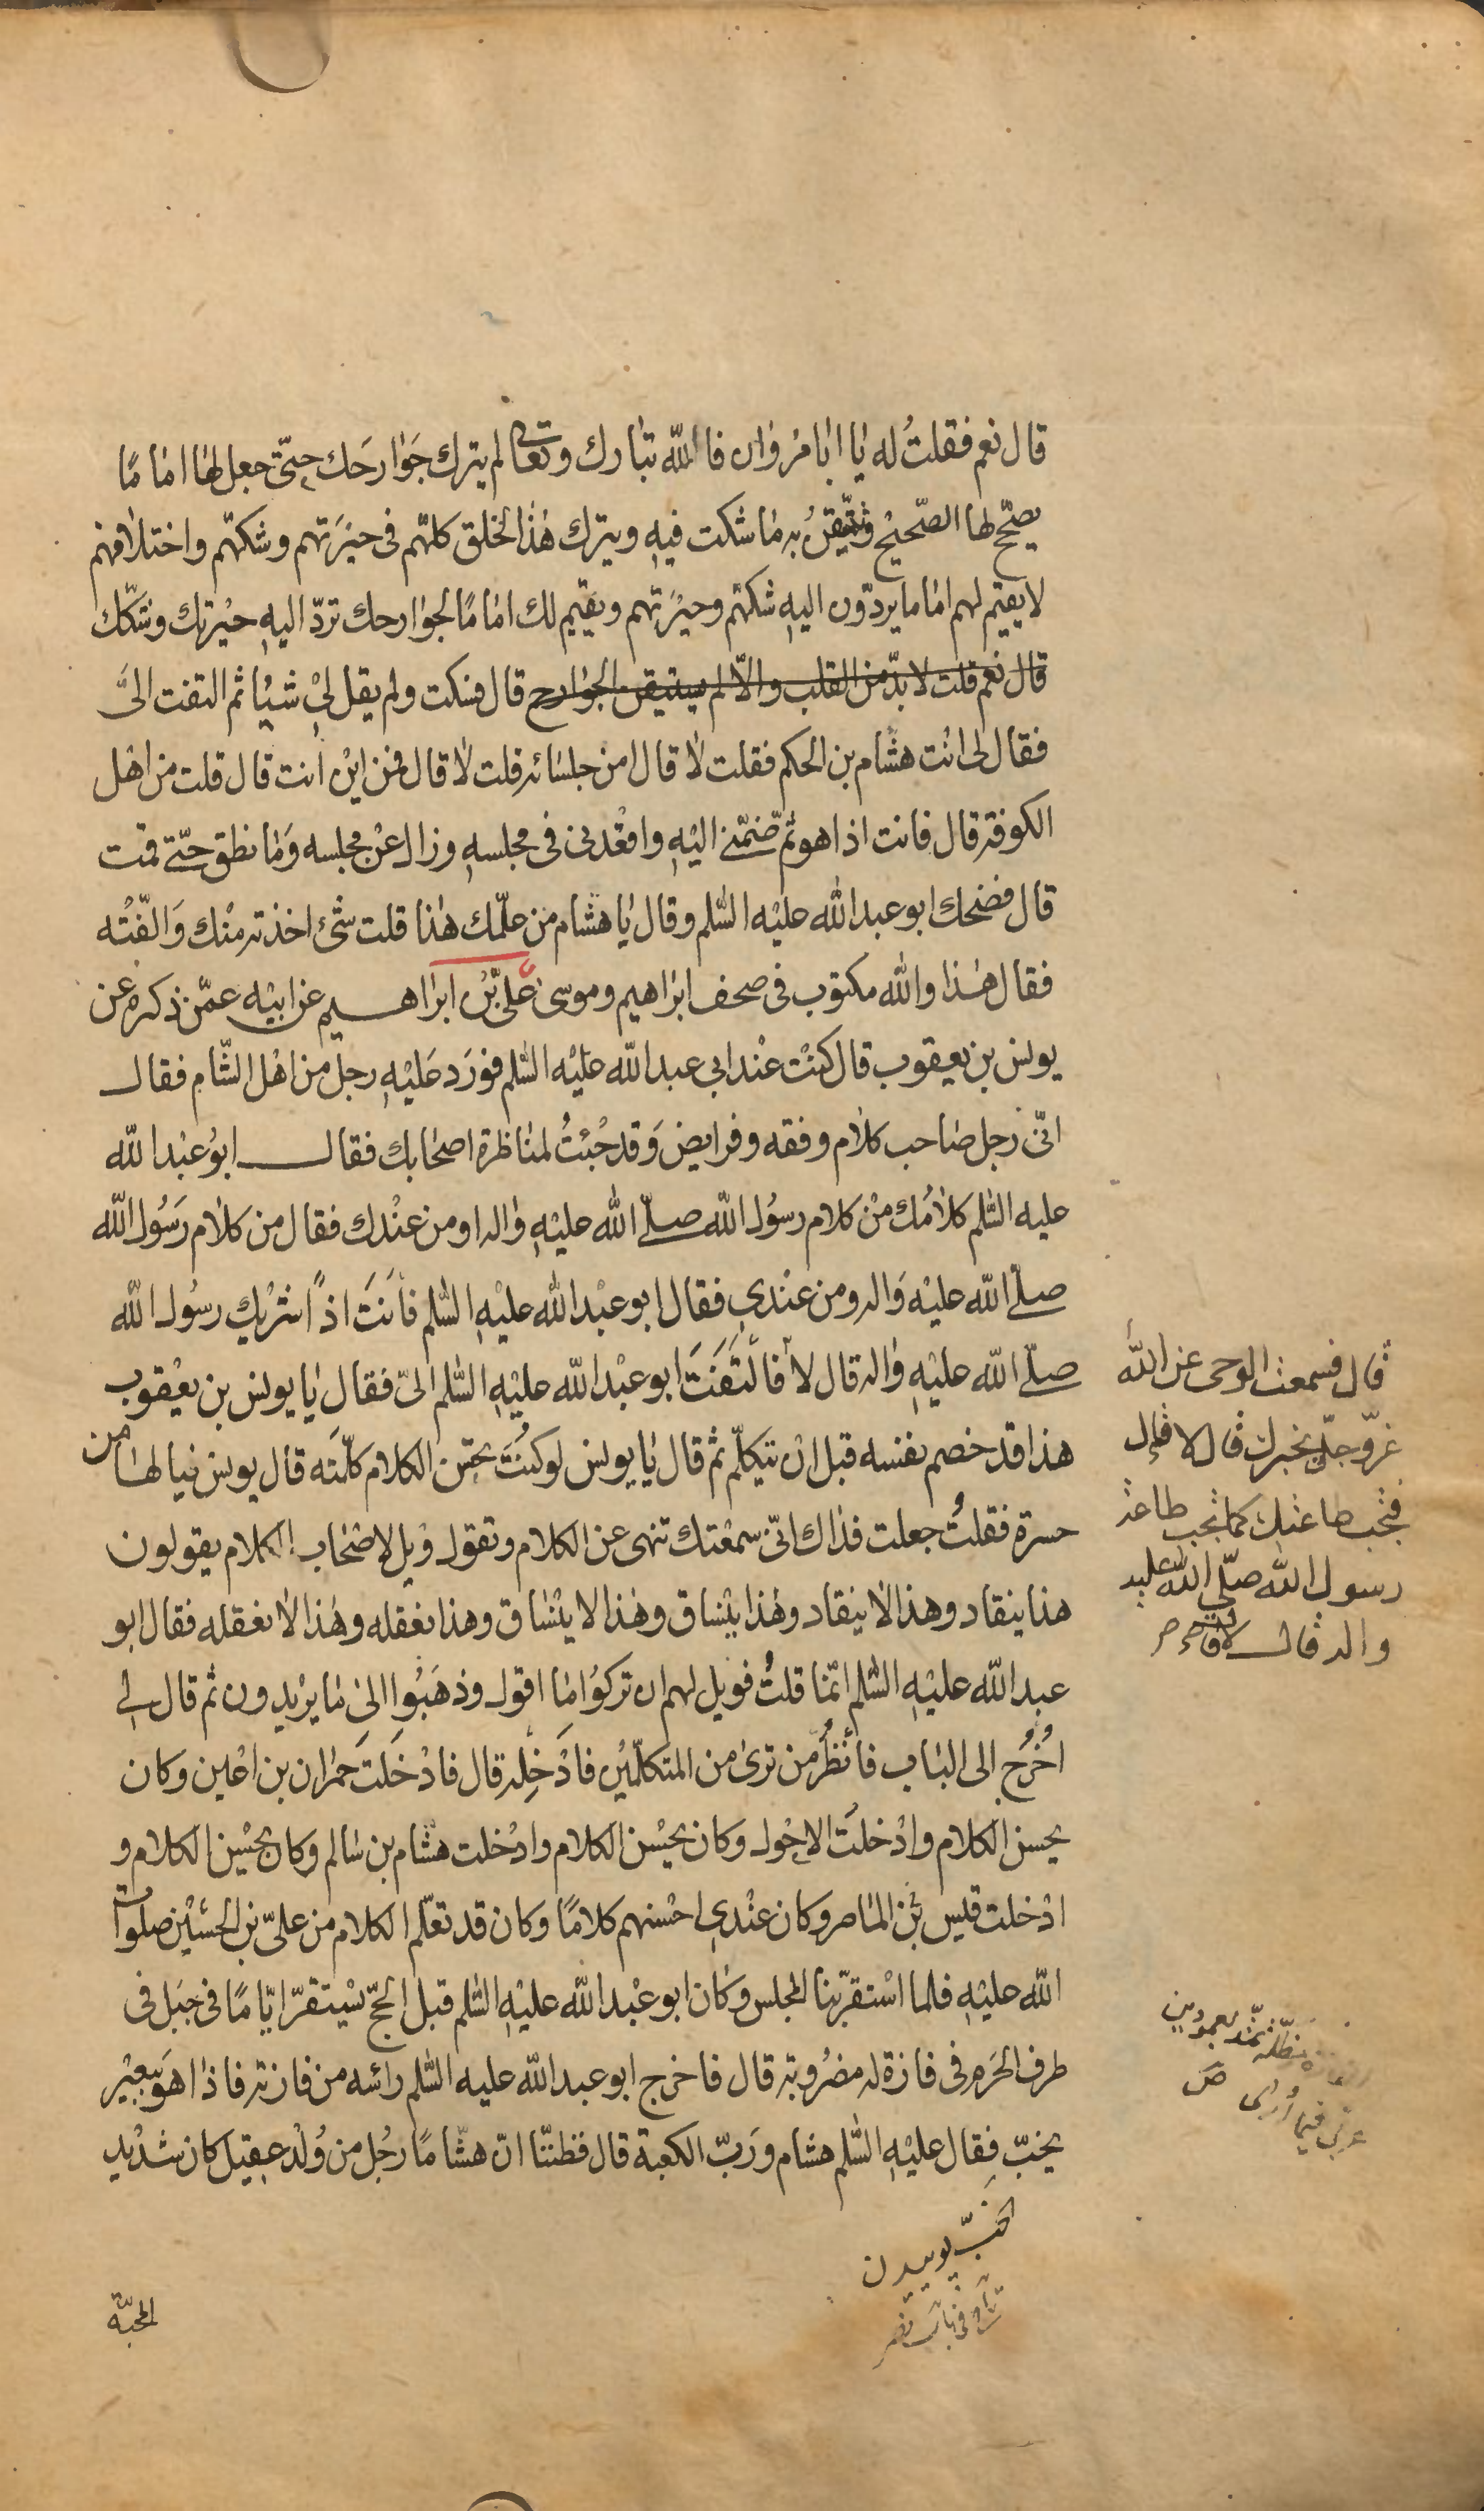 قال نعم فقلتُ له يا ابا مروان فالله تبارك وتعالى لم يترك جوارحك حتّى جعل لها اماما
يصحّح لها الصّحيح وتتيقّن به ما شكت فيه ويترك هذا الخلق كلّهم فى حيرتهم وشكّهم واختلافهم
لا يقيم لهم اماما يردّون اليه شكّهم وحيرتهم ويقيم لك اماما لجوارحك تردّ اليه حيرتك وشكّك
قال نعم قلت لا بدّ من القلب والّا لم يستيقن الجوارح قال فسكت ولم يقل لى شيئا ثم التفت الىَّ
فقال لى انت هشام بن الحكم فقلت لا قال امن جلسائه قلت لا قال فمن اين انت قال قلت من اهل
الكوفة قال فانت اذا هو ثم ضمّنى اليه واقعدنى فى مجلسه وزال عن مجلسه وما نطق حتّى قمت
قال فضحك ابو عبد الله عليه السّلم وقال يا هشام من علّمك هذا قلت شئ اخذته منك والّفته
فقال هذا والله مكتوب فى صحف ابراهيم وموسى علىّ بن ابراهيم عن ابيه عمّن ذكره عن
يونس بن يعقوب قال كنت عند ابي عبد الله عليه السّلم فورد عليه رجل من اهل الشّام فقال
انّى رجل صاحب كلام وفقه وفرايض وقد جئتُ لمناظرة اصحابك فقال ابو عبد الله
عليه السّلم كلامك من كلام رسول الله صلّى الله عليه واله او من عندك فقال من كلام رسول الله
صلّى الله عليه واله ومن عندى فقال ابو عبد الله عليه السّلم فأنت اذاً شريك رسول الله
صلّى الله عليه واله قال لا فالتفت ابو عبد الله عليه السّلم الىّ فقال يا يونس بن يعقوب
هذا قد خصم نفسه قبل ان يتكلّم ثم قال يا يونس لو كنت تحسن الكلام كلّمته قال يونس فيا لها من
حسرة فقلتُ جعلت فداك انّى سمعتك تنهى عن الكلام وتقول ويل لاصحاب الكلام يقولون
هذا ينقاد وهذا لا ينقاد وهذا ينساق وهذا لا ينساق وهذا نعقله وهذا لا نعقله فقال ابو
عبد الله عليه السّلم انّما قلتُ فويل لهم ان تركوا ما اقول وذهبوا الى ما يريدون ثم قال لى
اخرج الى الباب فانظر من ترى من المتكلّمين فادخله قال فادخلت حمران بن اعين وكان
يحسن الكلام وادخلت الاحول وكان يحسن الكلام وادخلت هشام بن سالم وكان يحسن الكلام و
ادخلت قيس بن الماصر وكان عندى احسنهم كلاما وكان قد تعلّم الكلام من علىّ بن الحسين صلوات
الله عليه فلما استقرّ بنا المجلس وكان ابو عبد الله عليه السّلم قبل الحجّ يستقرّ ايّاما فى جبل فى
طرف الحرم فى فازة له مضروبة قال فاخرج ابو عبد الله عليه السّلم رائسه من فازته فاذا هو ببعير
يخبّ فقال عليه السّلم هشام وربّ الكعبة قال فظننّا انّ هشاما رجل من ولد عقيل كان شديد
المحبّة
قال فسمعت الوحى عن الله
عزّ وجلّ يخبرك قال لا قال
فتجب طاعتك كما تجب طاعة
رسول الله صلّى الله عليه
واله قال لا
مظلّة تمدّ بعمودين
عربى فيما أرى ص
الخبّ پوييدن